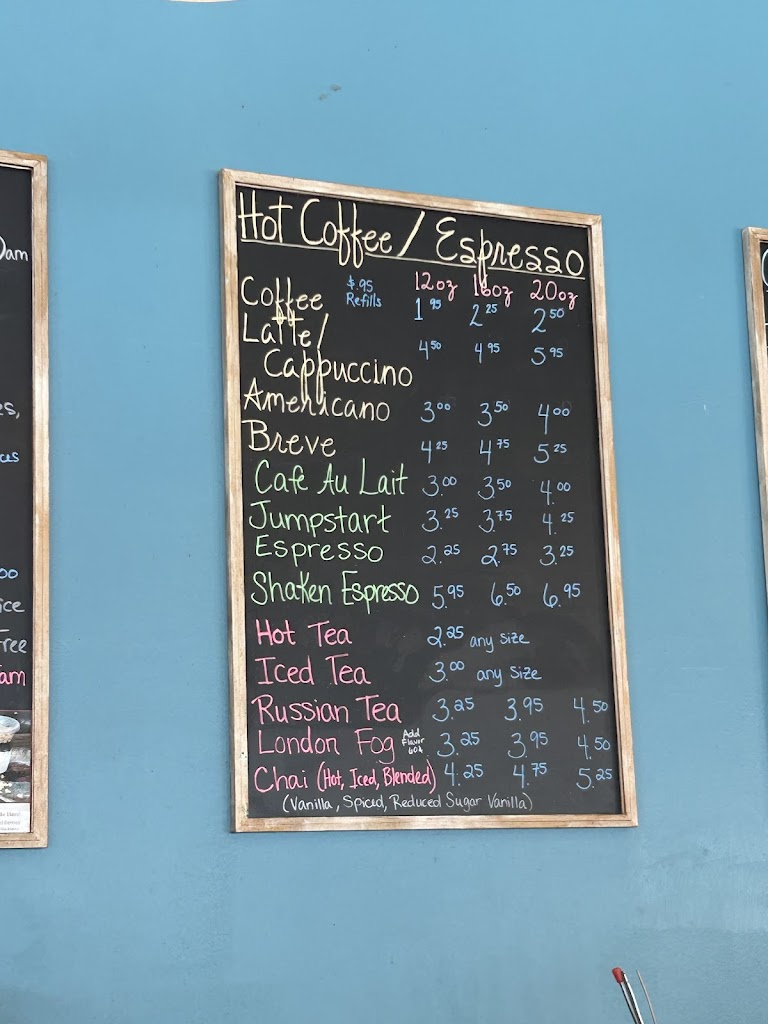 Dam
es,
ces
00
ice
Free
am
Hot Coffee / Espresso
12oz 16oz 20oz
Coffee $.95 Refills 1 95 2 25 2 50
Latte/
Cappuccino 4 50 4 95 5 95
Americano 3 00 3 50 4 00
Breve 4 25 4 75 5 25
Cafe Au Lait 3.00 3.50 4.00
Jumpstart 3.25 3.75 4.25
Espresso 2.25 2.75 3.25
Shaken Espresso 5.95 6.50 6.95
Hot Tea 2.25 any size
Iced Tea 3.00 any size
Russian Tea 3.25 3.95 4.50
London Fog Add Flavor 60¢ 3.25 3.95 4.50
Chai (Hot, Iced, Blended) 4.25 4.75 5.25
(Vanilla, Spiced, Reduced Sugar Vanilla)